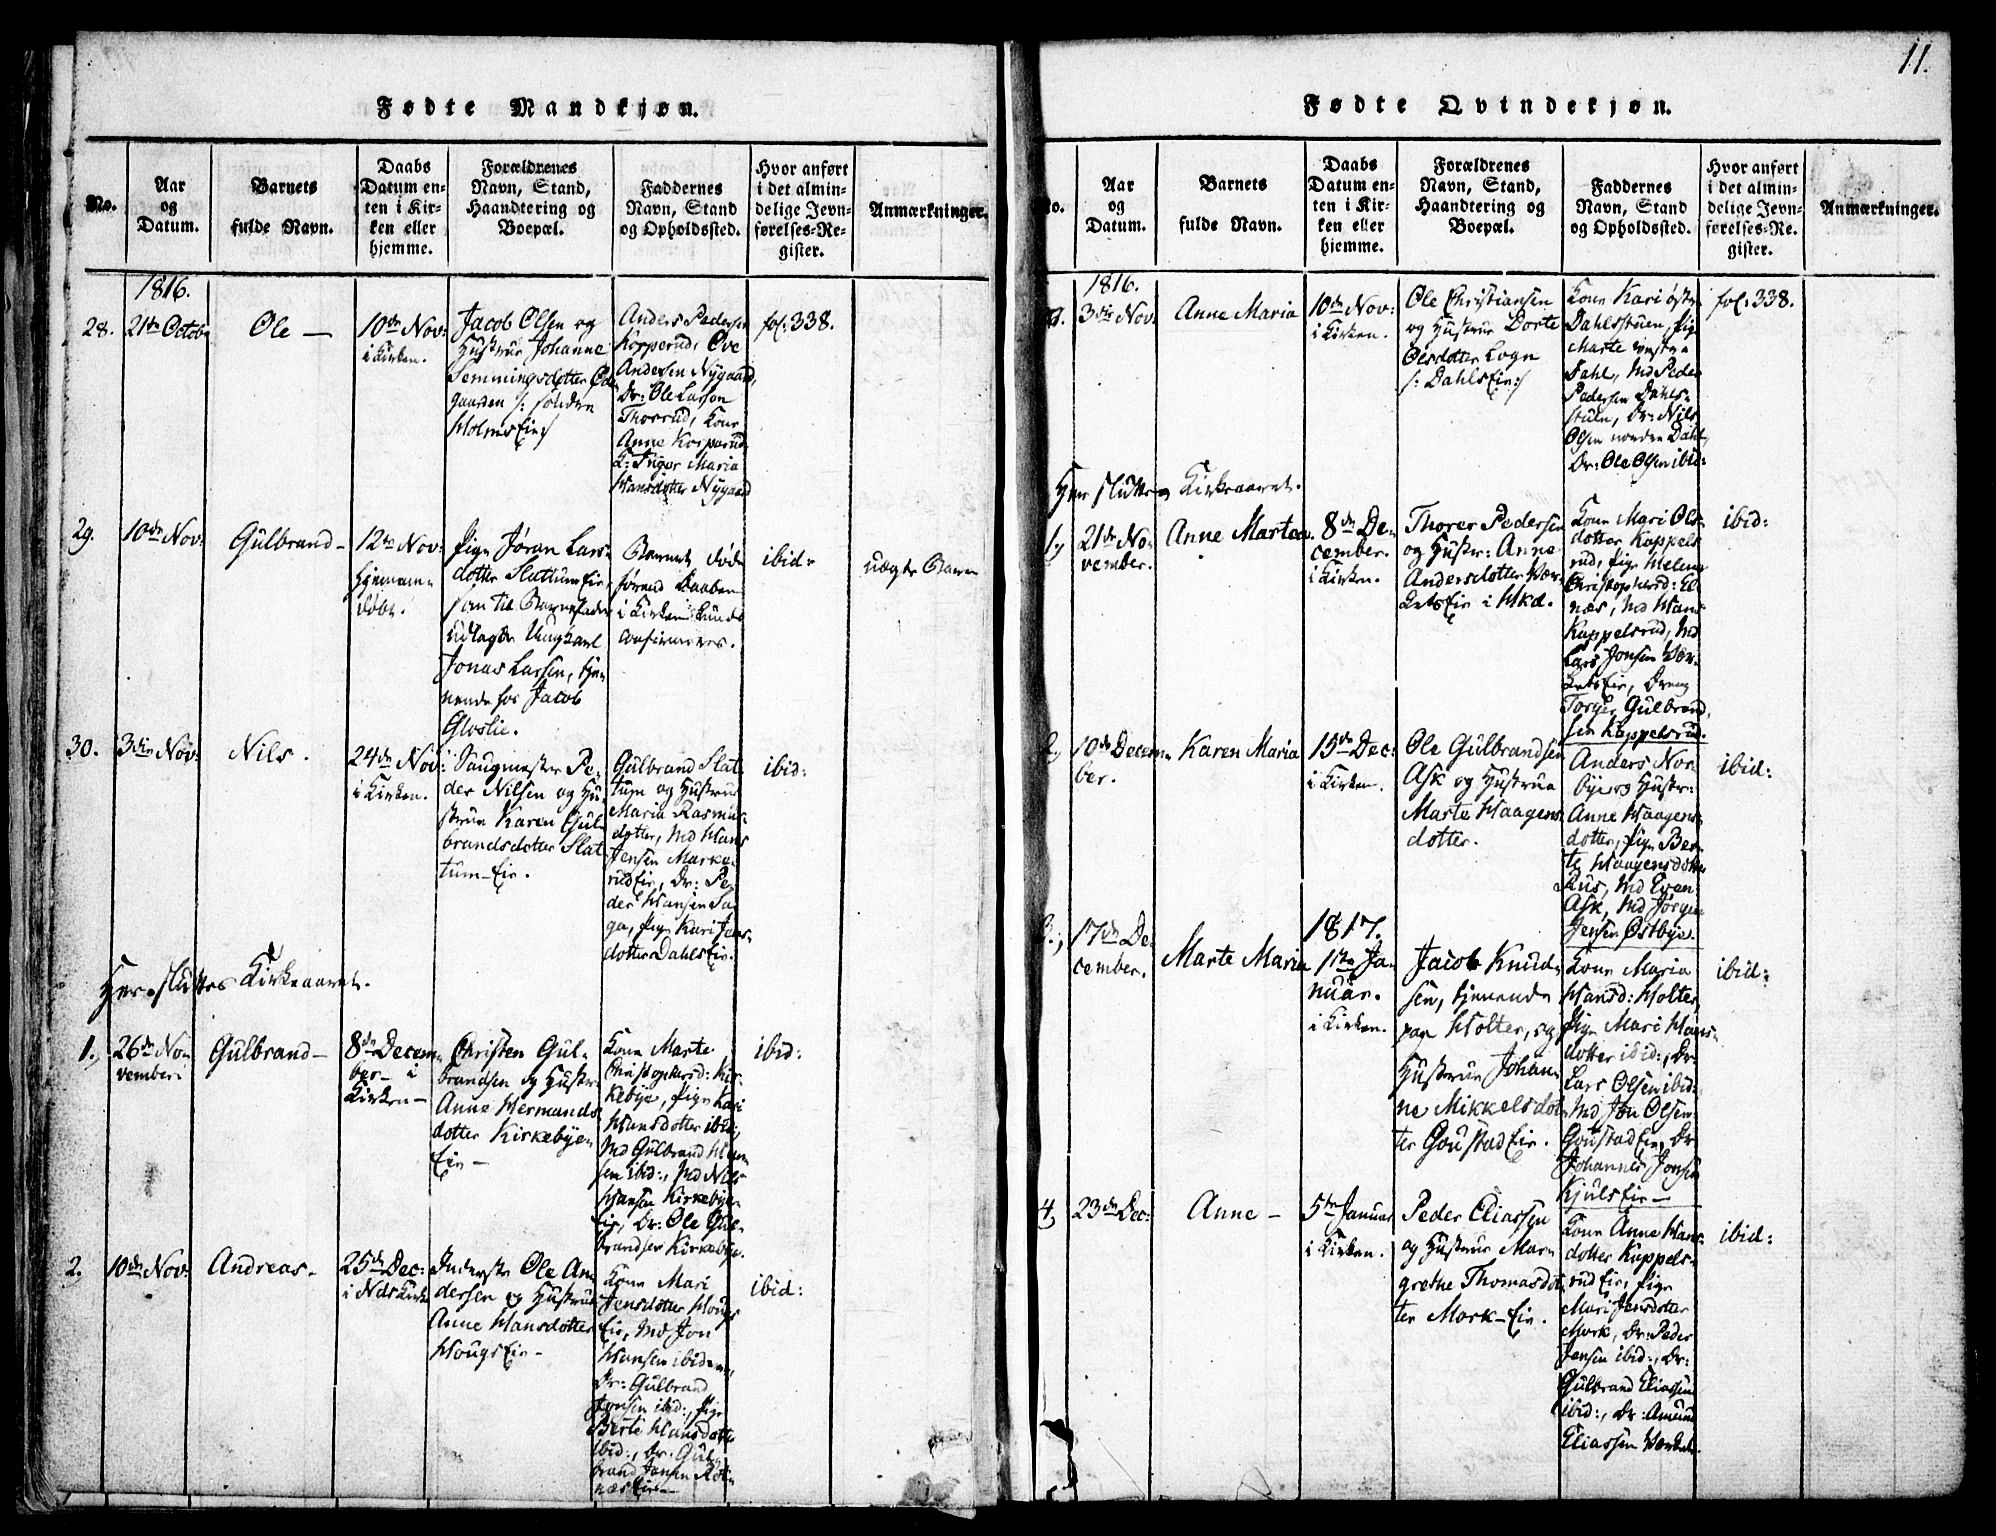 11.
Fødte Mandkjøn.
No.
Aar
og
Datum.
Barnets
fulde Navn.
Daabs
Datum en-
ten i Kir-
ken eller
hjemme.
Forældrenes
Navn, Stand,
Haandtering og
Boepæl.
Faddernes
Navn, Stand
og Opholdssted.
Hvor anført
i det almin-
delige Jevn-
førelses-Re-
gister.
Anmærkninger.
1816.
28.
21de Octob
Ole —
10de Nov:
i Kirken.
Jacob Olsen og
Hustrue Johanne
Semmingsdotter
gaarden /: søndre
Holms Eie :/
Anders Pedersen
Kopperud, Ove
Andersen Nygaard,
Dr: Ole Larson
Thorrud, Kone
Anne Kopperud
Maria
Hansdotter Nygaard
fol: 338.
29.
10de Nov:
Gulbrand —
12te Nov:
hjemme-
døbt.
Pige Jøran Lars-
dotter Slattum Eie
som til Barnefader
udlagde Ungkarl
Jonas Larsen, tje-
nende hos Jacob
Gloslie.
Barnet døde
førend Daaben
i Kirken kunde
confirmeres.
ibid:
uægte Barn
30.
3die Nov:
Nils.
24de Nov:
i Kirken.
Saugmester Pe-
der Nilsen og Hu-
strue Karen Gul-
brandsdotter Slat-
tum-Eie.
Gulbrand Slat-
tum og Hustrue
Maria Rasmus-
dotter, Md Hans
Jensen Marke-
rud Eie, Dr: Pe-
der Hansen Sa-
ga, Pige Kari Jens-
dotter Dahls Eie.
ibid:
Her sluttes Kirkeaaret.
1.
26de No-
vember.
Gulbrand —
8de Decem-
ber i
Kirken —
Christen Gul-
brandsen og Hustr:
Anne Hermands-
dotter Kirkebye-
Eie —
Kone Marte
Christophersd: Kir-
kebye, Pige Kari
Hansdotter ibid:,
Md Gulbrand Han-
sen ibid:, Md Nils
Hansen Kirkebye-
Eie, Dr: Ole Gul-
brandsen Kirkebye.
ibid:
2.
10de Nov:
Andreas —
25de Dec:
i Nds Kirke
Inderste Ole An-
dersen og Hustrue
Anne Hansdotter
Hougs Eie —
Kone Mari
Jensdotter Hougs
Eie, Md Jon
Hansen ibidem,
Dr: Gulbrand
Jonsen ibid:, Pige
Berte Hansdotter
ibid:, Dr: Gul-
brand Jonsen Rot-
næs Eie —
ibid:
Fødte Qvindekjøn.
No.
Aar
og
Datum.
Barnets
fulde Navn.
Daabs
Datum en-
ten i Kir-
ken eller
hjemme.
Forældrenes
Navn, Stand,
Haandtering og
Boepæl.
Faddernes
Navn, Stand
og Opholdssted.
Hvor anført
i det almin-
delige Jevn-
førelses-Re-
gister.
Anmærkninger.
1816.
3die Nov:
Anne Maria
10de Nov:
i Kirken.
Ole Christiansen
og Hustrue Dorte
Olsdotter Logn
/: Dahls Eie :/
Kone Kari østre
Dahlsstuen, Pige
Marte vestre
Dahl, Md Peder
Pedersen Dahls-
stuen, Dr: Nils
Olsen nordre Dahl,
Dr: Ole Olsen ibid:
fol: 338.
Her sluttes Kirkeaaret.
1,
21de No-
vember.
Anne Martea.
8de De-
cember.
i Kirken.
Thorer Pedersen
og Hustr: Anne
Andersdotter Vær-
kets Eie i Hkd.
Kone Mari Ols-
dotter Kappels-
rud, Pige Helene
Christophersd: El-
næs, Md Hans
Kappelsrud, Md
Lars Jonsen Vær-
kets Eie, Dreng
Torger Gulbrand-
sen Kappelsrud.
ibid:
2,
10de Decem-
ber.
Karen Maria
15de Dec:
i Kirken.
Ole Gulbrandsen
Ask og Hustrue
Marte Haagens-
dotter.
Anders Nor-
bye og Hustr:
Anne Haagens-
dotter, Pige Ber-
te Haagensdotter
Rus, Md Even
Ask, Md Jørgen
Jensen Østbye.
ibid:
3.,
17de De-
cember.
Marte Maria
1817.
1ste Ja-
nuar.
i Kirken.
Jacob Knud-
sen, tjenende
paa Holter, og
Hustrue Johan-
ne Mikkelsdot-
ter Goustad Eie.
Kone Maria
Hansd: Holter,
Pige Mari Hans-
dotter ibid:, Dr:
Lars Olsen ibid:
Md Jon Olsen
Goustad Eie, Dr:
Johannes Jonsen
Kjuls Eie —
ibid:
4,
23de Dec:
Anne —
5te Januar
i Kirken.
Peder Eliassen
og Hustrue Mar-
grethe Thomasdot-
ter Mork-Eie.
Kone Anne Hans-
dotter Kappels-
rud Eie, Pige
Mari Jensdotter
Mork, Dr: Peder
Jensen ibid:, Dr:
Gulbrand Eliassen
ibid:, Dr: Amund
Eliassen Værket.
ibid: